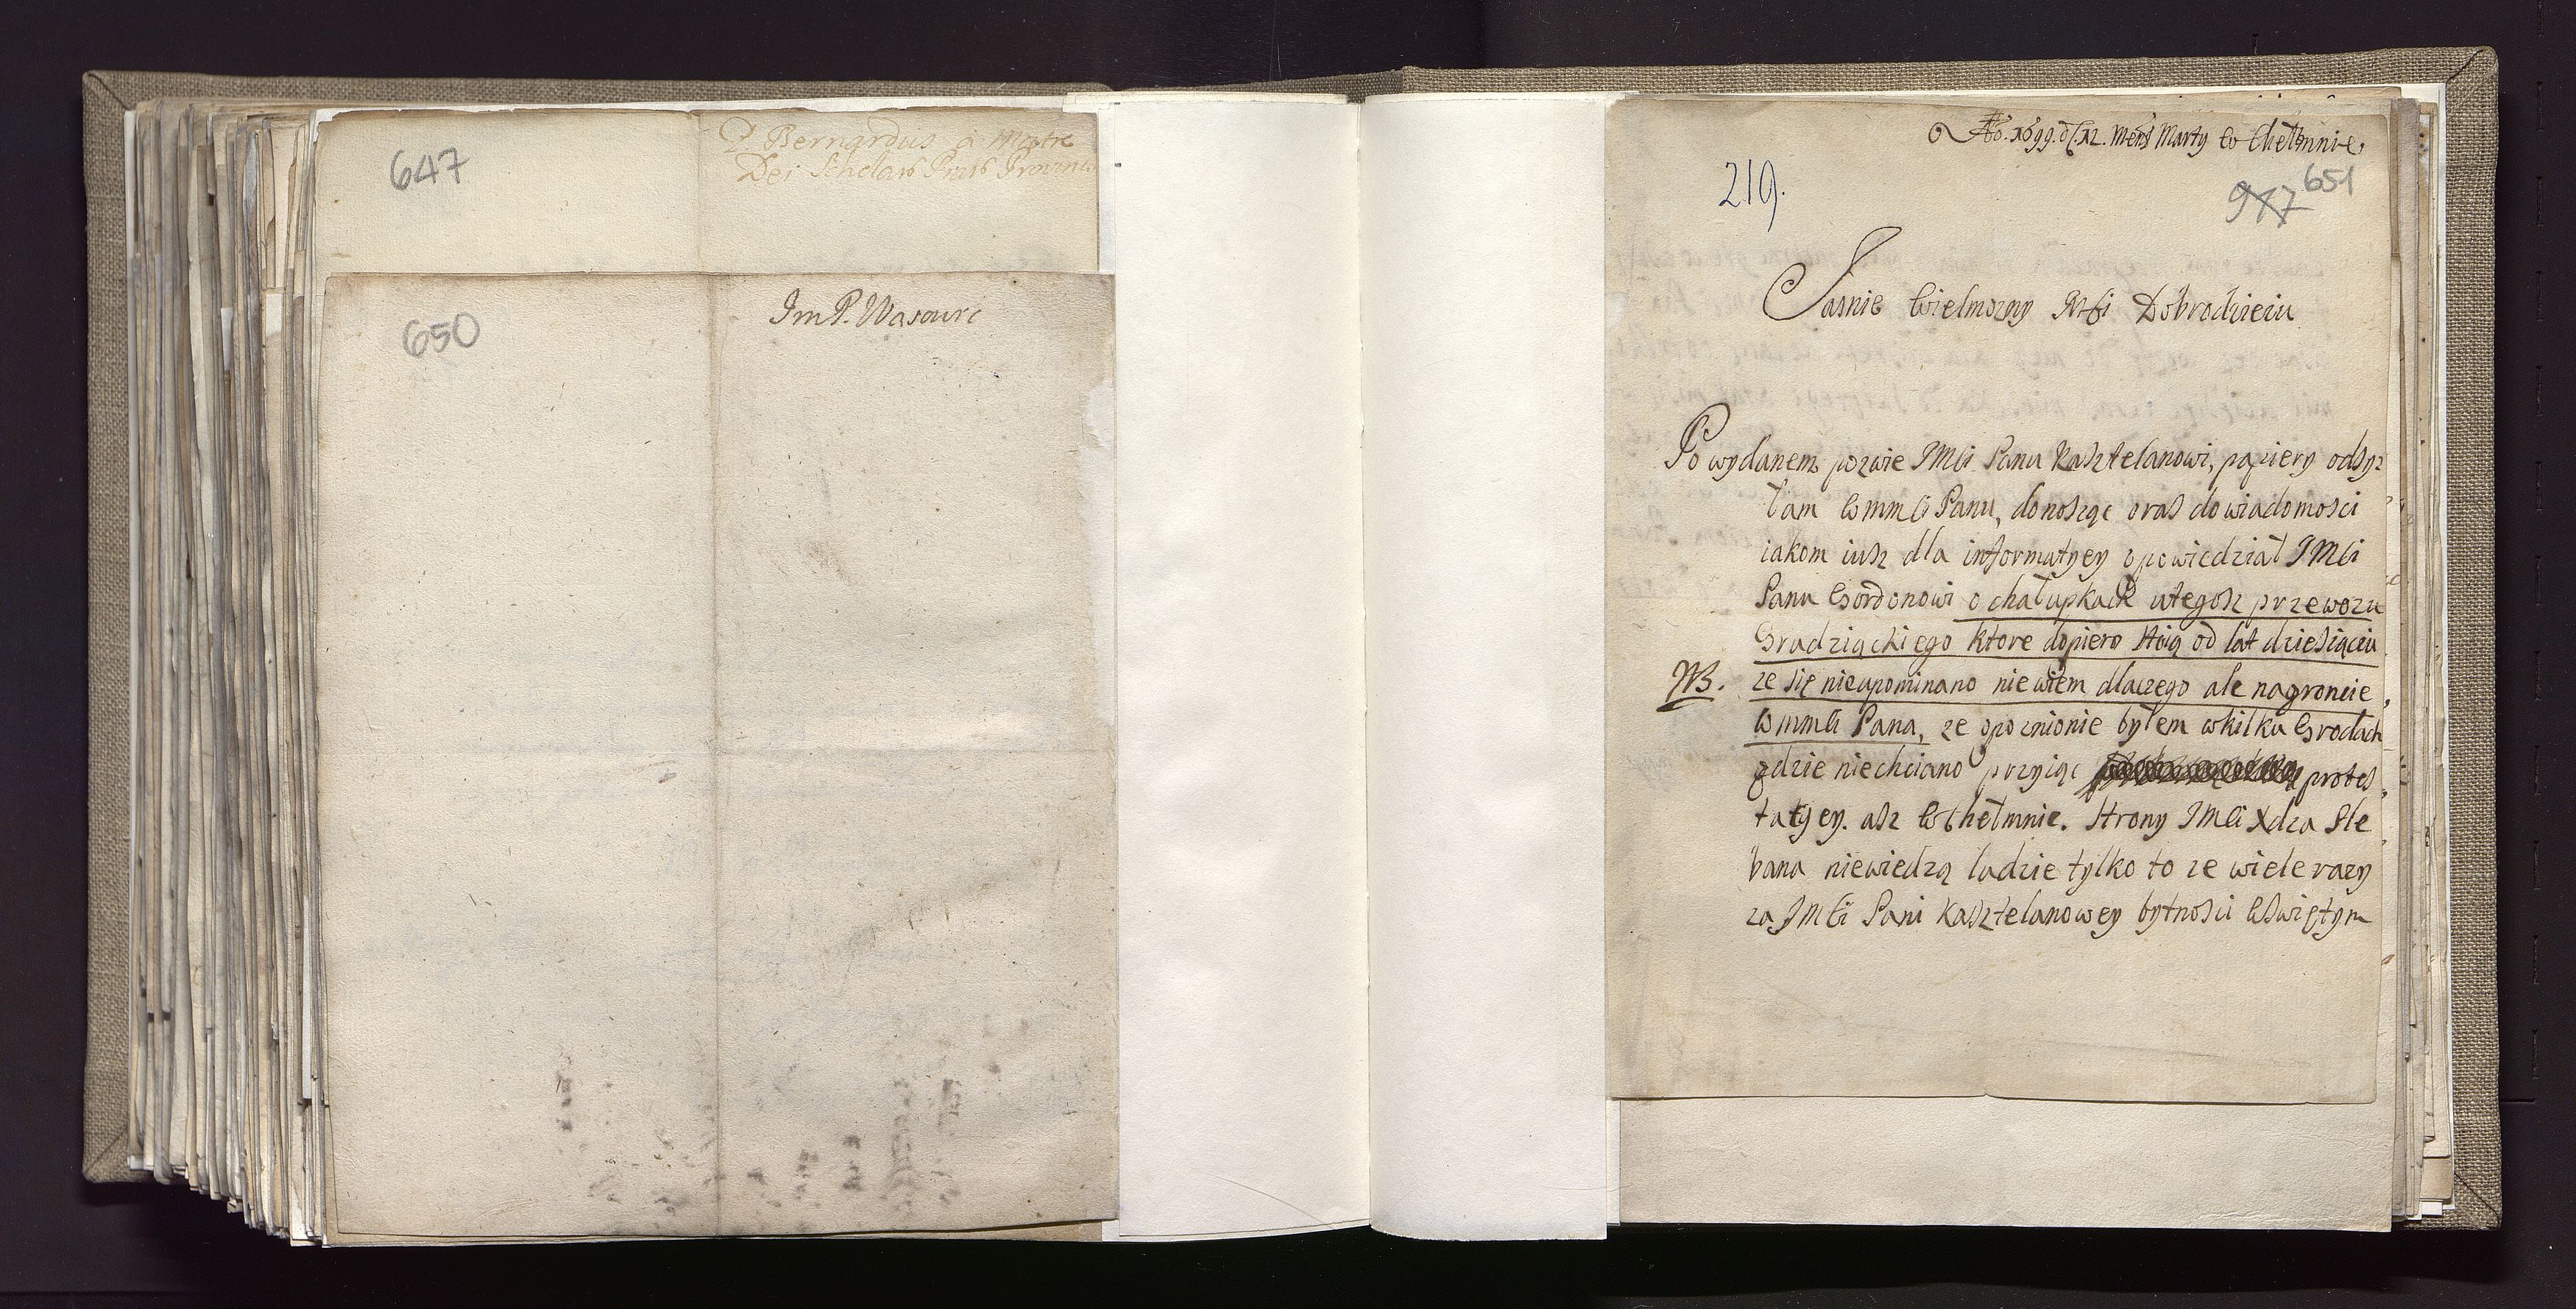 647
P Bernardus à Matre
Dei Scholar Piar Provincia
650
Im P. Wasowic
Ao. 1699. d. 12. Mens Marty w Chełmnie
219.
651
917
Jasnie Wielmozny Mći Dobrodzieiu
Po wydanem pozwie JMći Panu Kasztelanowi, papiery odsy=
łam WMMći Panu, donosząc oras do wiadomosci
iakom iusz dla informatyey opowiedział JMći
Panu Gordonowi o chałupkach utegosz przewozu
Grudziąckiego ktore dopiero stoią od lat dziesiąciu
NB. ze się nieupominano niewiem dlaczego ale nagroncie
WMMći Pana, ze opoznionie byłem wkilku Grodach
gdzie niechciano przyiąc protes=
tatyey. asz WChełmnie. Strony JMći Xdza Ple=
bana niewiedzą ludzie tylko to ze wiele razy
za JMći Pani Kasztelanowey bytnosci WSwiętym